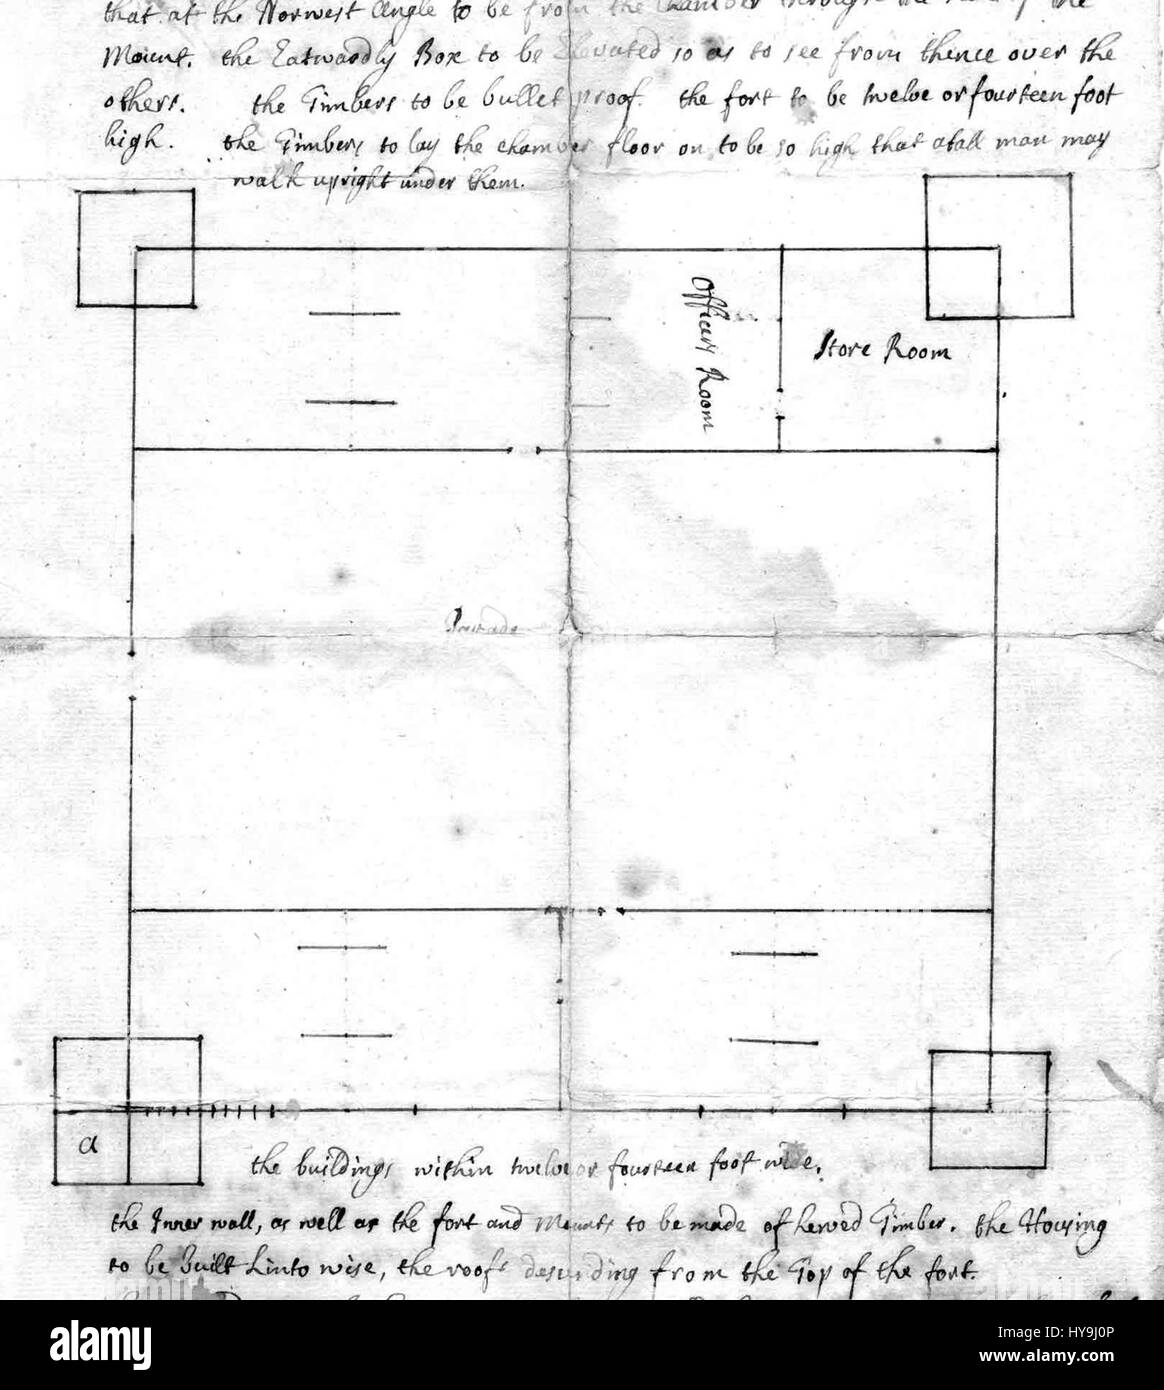 that at the Norwest Angle to be from the Chamber through the of the
Mount. the Eatwardly Box to be Elevated so as to see from thence over the
others. the Timbers to be bullet proof. the fort to be twelve or fourteen foot
high. the Timbers to lay the chamber floor on to be so high that a tall man may
walk upright under them.
Officers Room
Store Room
a
the buildings within twelve or fourteen foot wide.
the Inner wall, as well as the fort and Mounts to be made of hewed Timber. the Housing
to be Built Linto wise, the roofs descending from the Top of the fort.
alamy
HY9J0P
www.alamy.com